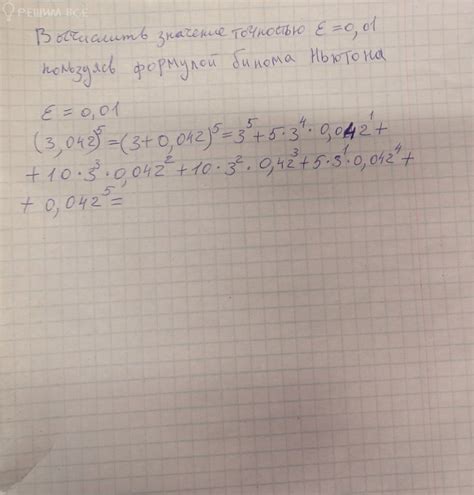 РЕШИМ ВСЕ
Вычислить значение точностью ε=0,01
пользуясь формулой бинома Ньютона
ε = 0,01
(3,042)⁵=(3+0,042)⁵=3⁵+5·3⁴·0,042¹+
+10·3³·0,042²+10·3²·0,42³+5·3¹·0,042⁴+
+0,042⁵=